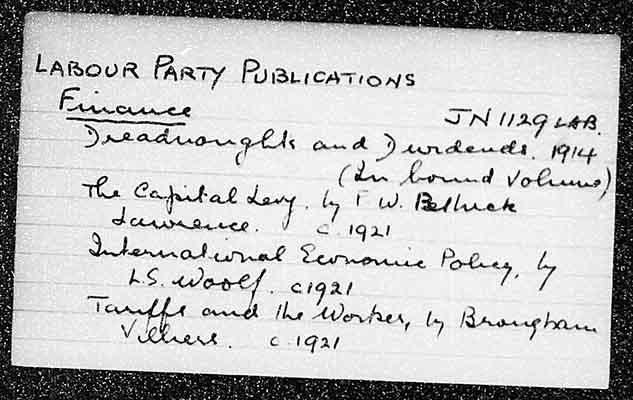 LABOUR PARTY PUBLICATIONS
Finance JN 1129 LAB.
Dreadnoughts and Dividends. 1914
(In bound volume)
The Capital Levy, by F W. Pethick
Lawrence. c. 1921
International Economic Policy, by
L.S. Woolf. c1921
Tariffs and the Worker, by Brougham
Villiers. c. 1921